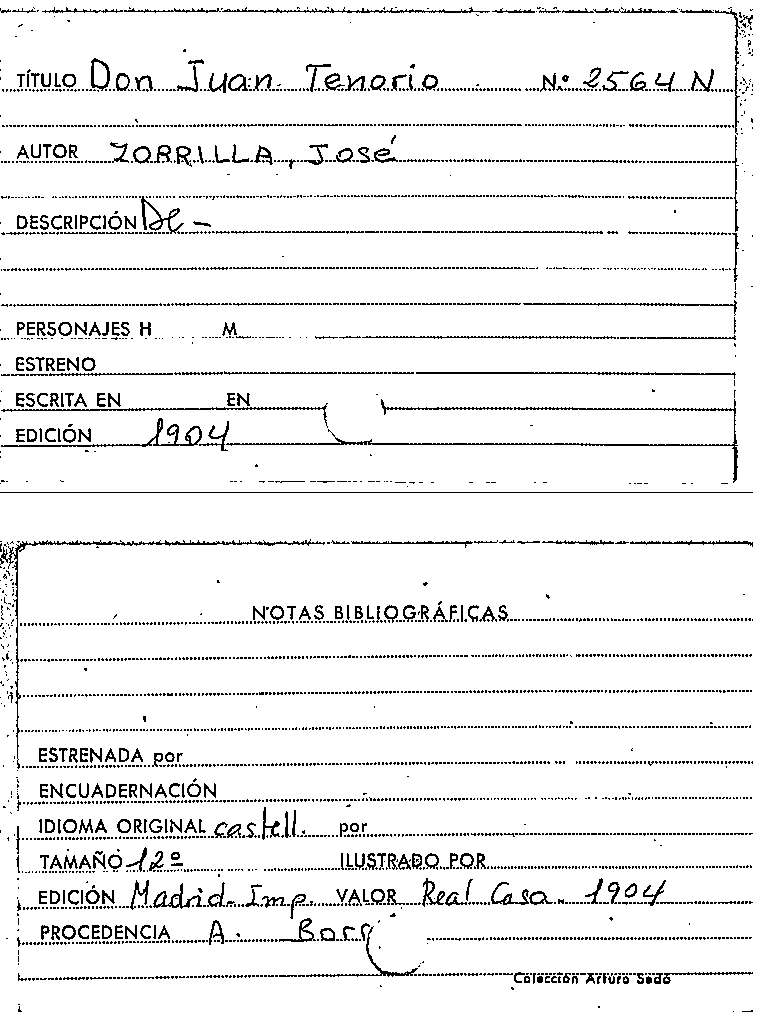 TÍTULO Don Juan Tenorio N.º 2564 N
AUTOR ZORRILLA, José
DESCRIPCIÓN De -
PERSONAJES H M
ESTRENO
ESCRITA EN EN
EDICIÓN 1904
NOTAS BIBLIOGRÁFICAS
ESTRENADA por
ENCUADERNACIÓN
IDIOMA ORIGINAL castell. por
TAMAÑO 12º ILUSTRADO POR
EDICIÓN Madrid. Imp. VALOR Real Casa. 1904
PROCEDENCIA A.
Colección Arturo Sedó